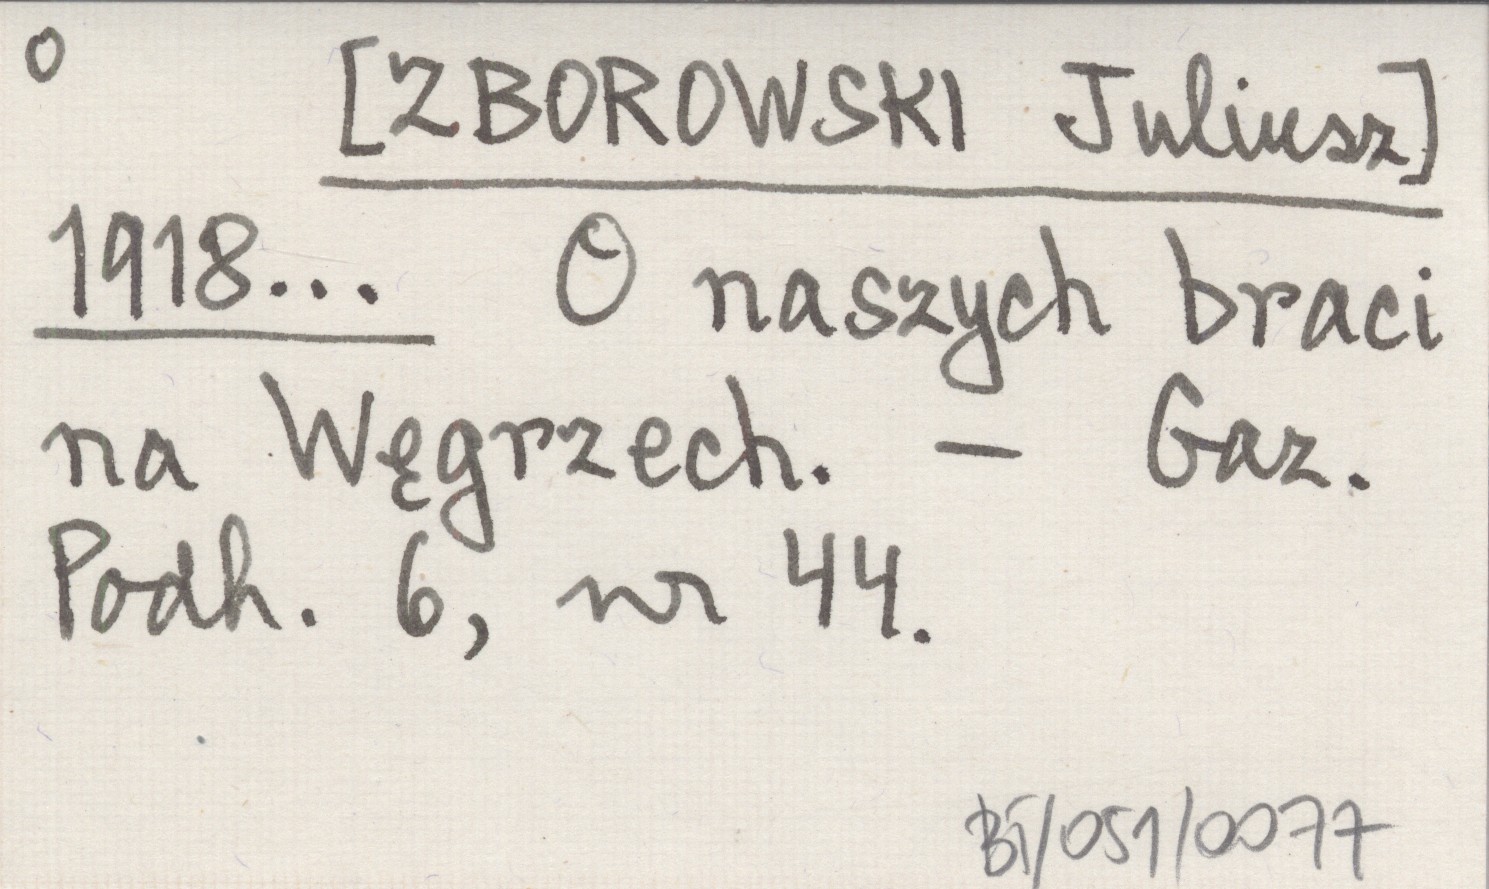 o [ZBOROWSKI Juliusz]
1918... O naszych braci
na Węgrzech. – Gaz.
Podh. 6, nr 44.
BI/051/0077